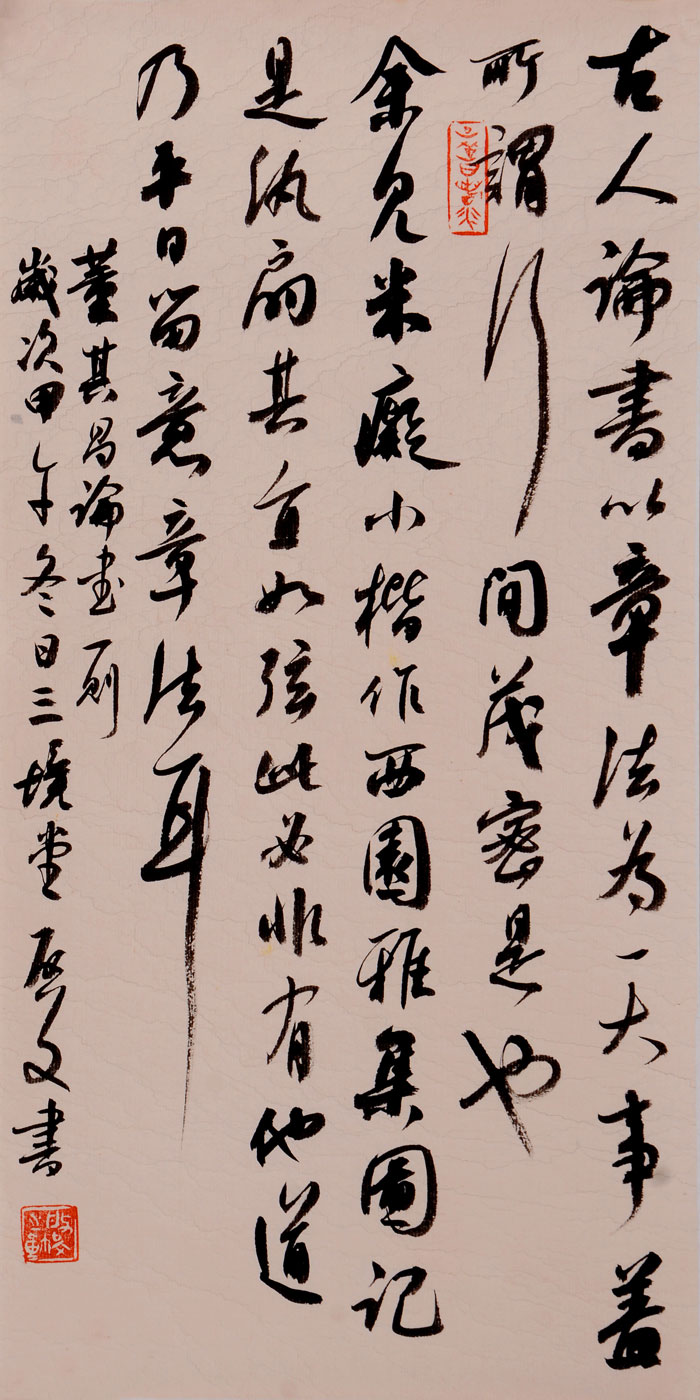 古人論書以章法為一大事蓋
所謂行間茂密是也
余見米癡小楷作西園雅集圖記
是紈扇其直如弦此必非有他道
乃平日留意章法耳
董其昌論書一則
歲次甲午冬日三境堂啟文書